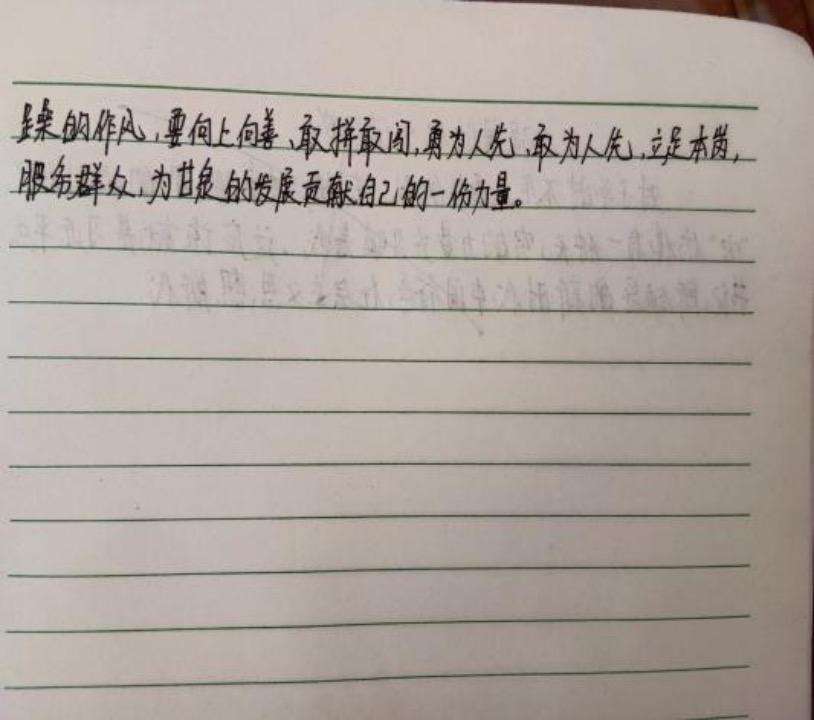 躁的作风，要向上向善、敢拼敢闯，勇为人先、敢为人先，立足本岗，
服务群众，为甘泉的发展贡献自己的一份力量。